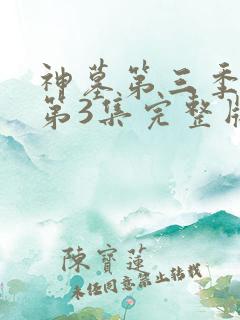 神墓第三季
第3集完整版
陳寶蓮
未经同意禁止转载